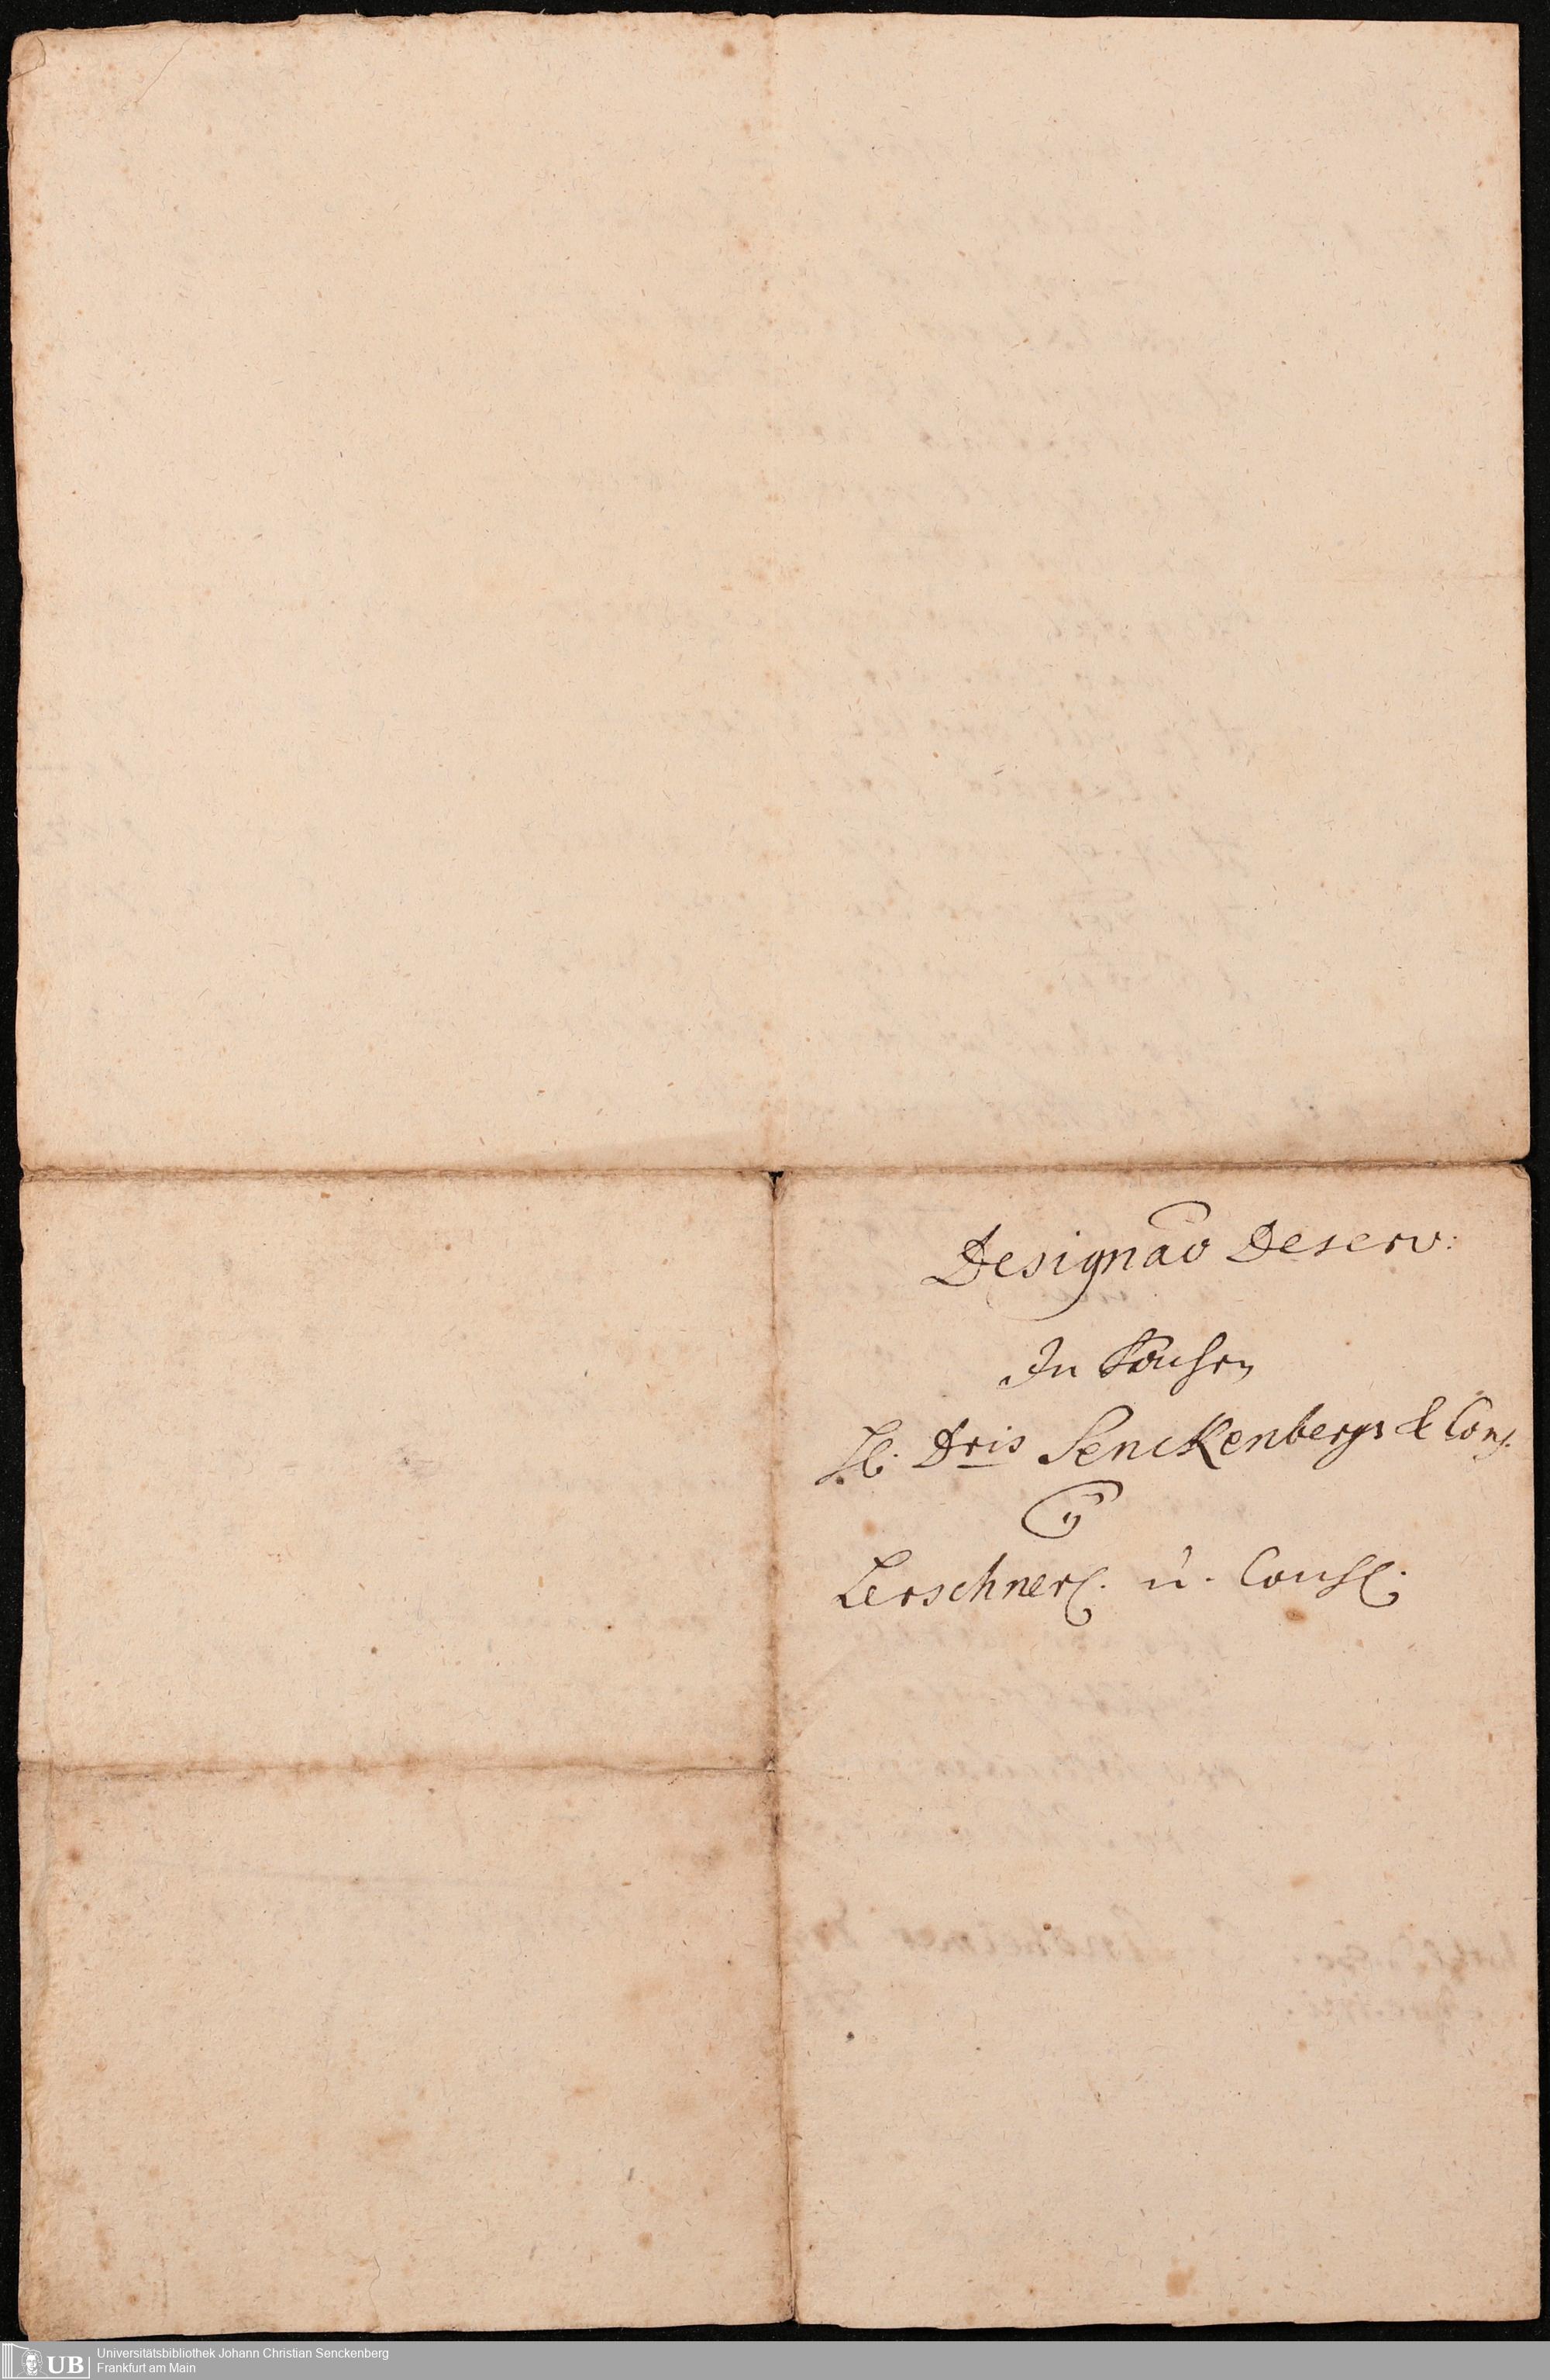 Designao Deserv:
In Sachen
H. Dris Senckenbergs & Cons.
Lerschner. u. Cons.
UB Universitätsbibliothek Johann Christian Senckenberg
Frankfurt am Main